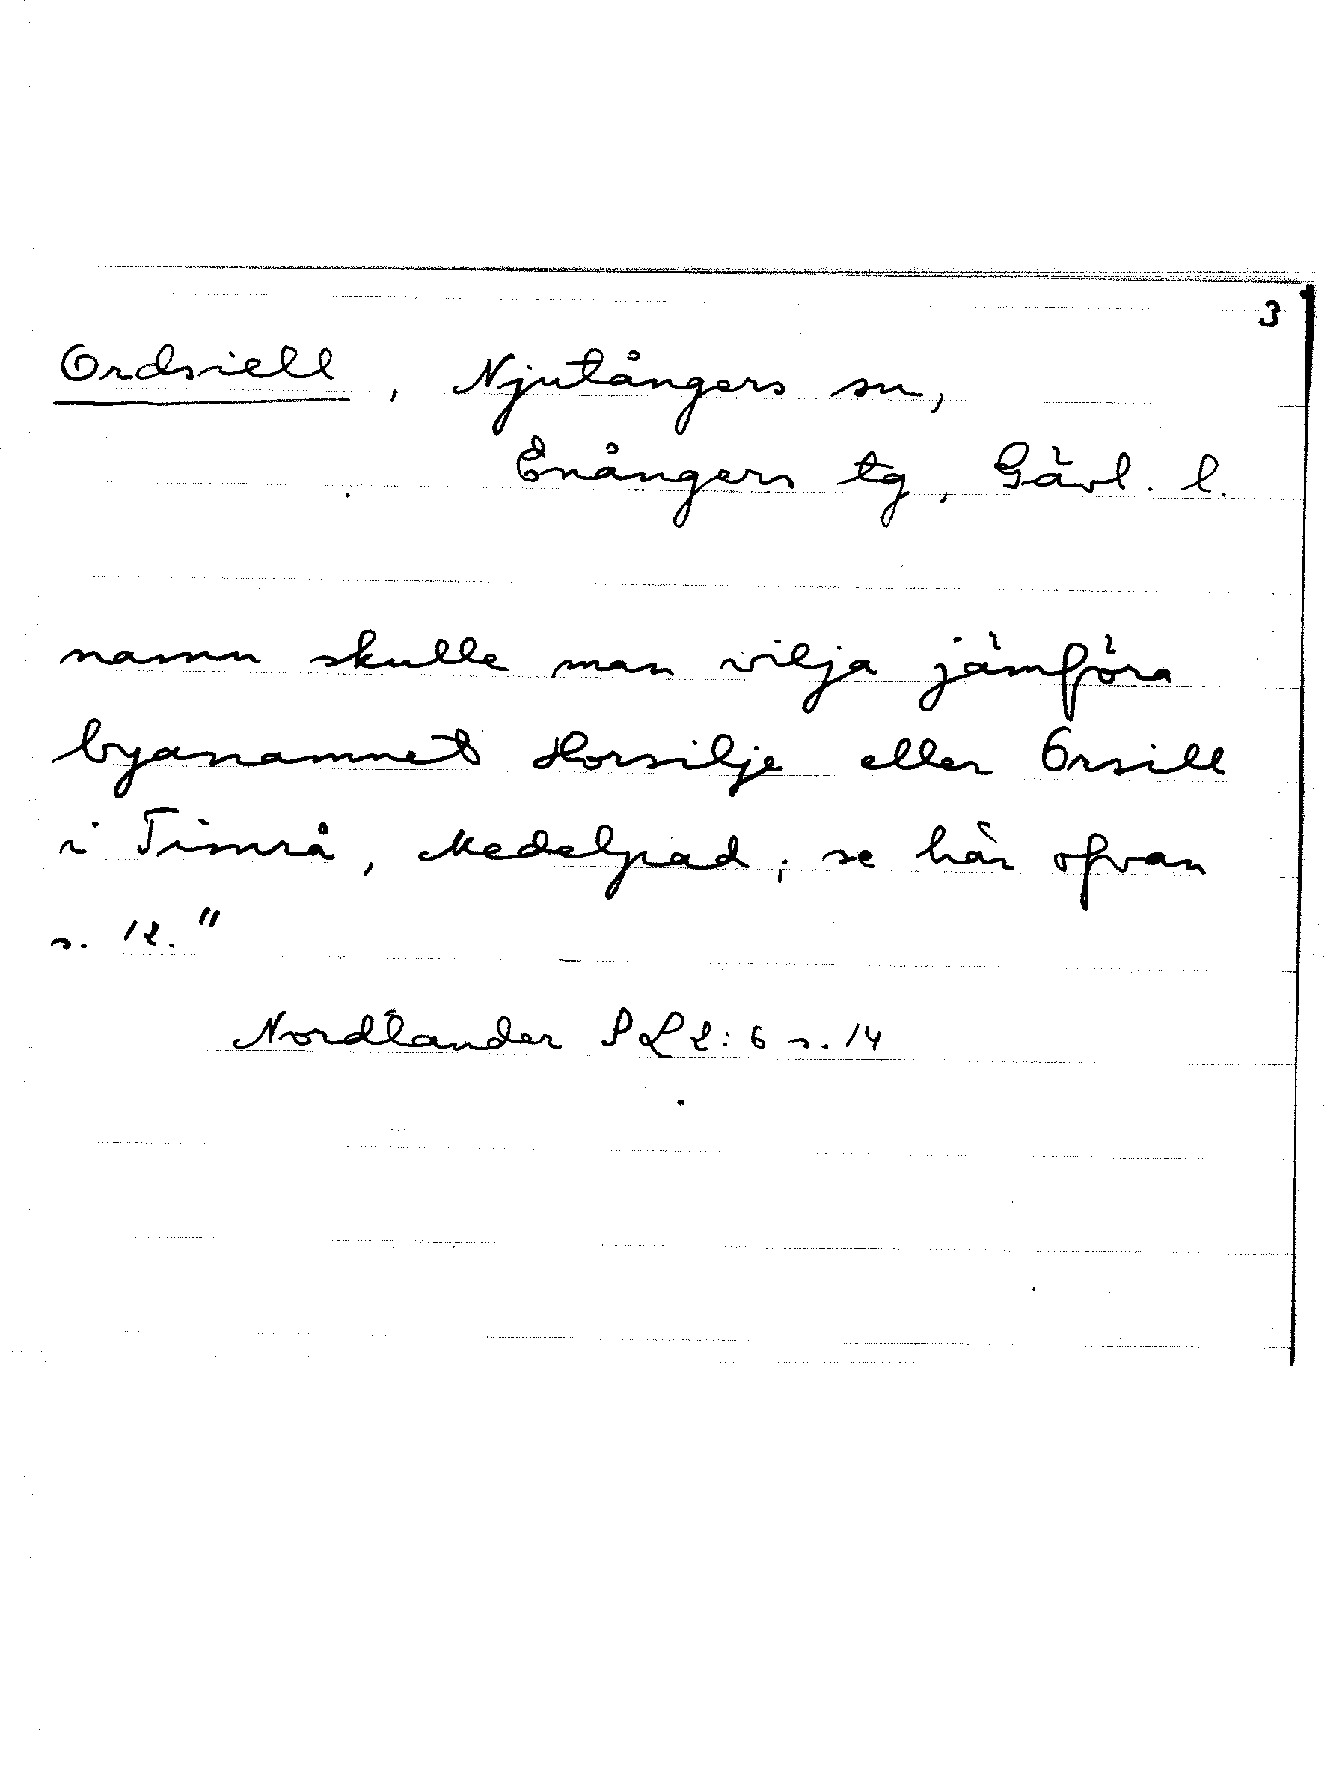 3
Ordsiell, Njutångers sn,
Enångers tg, Gävl. l.
namn skulle man vilja jämföra
byanamnet Horsilje eller Orsill
i Timrå, Medelpad, se här ofvan
s. 12."
Nordlander SL 2:6 s. 14